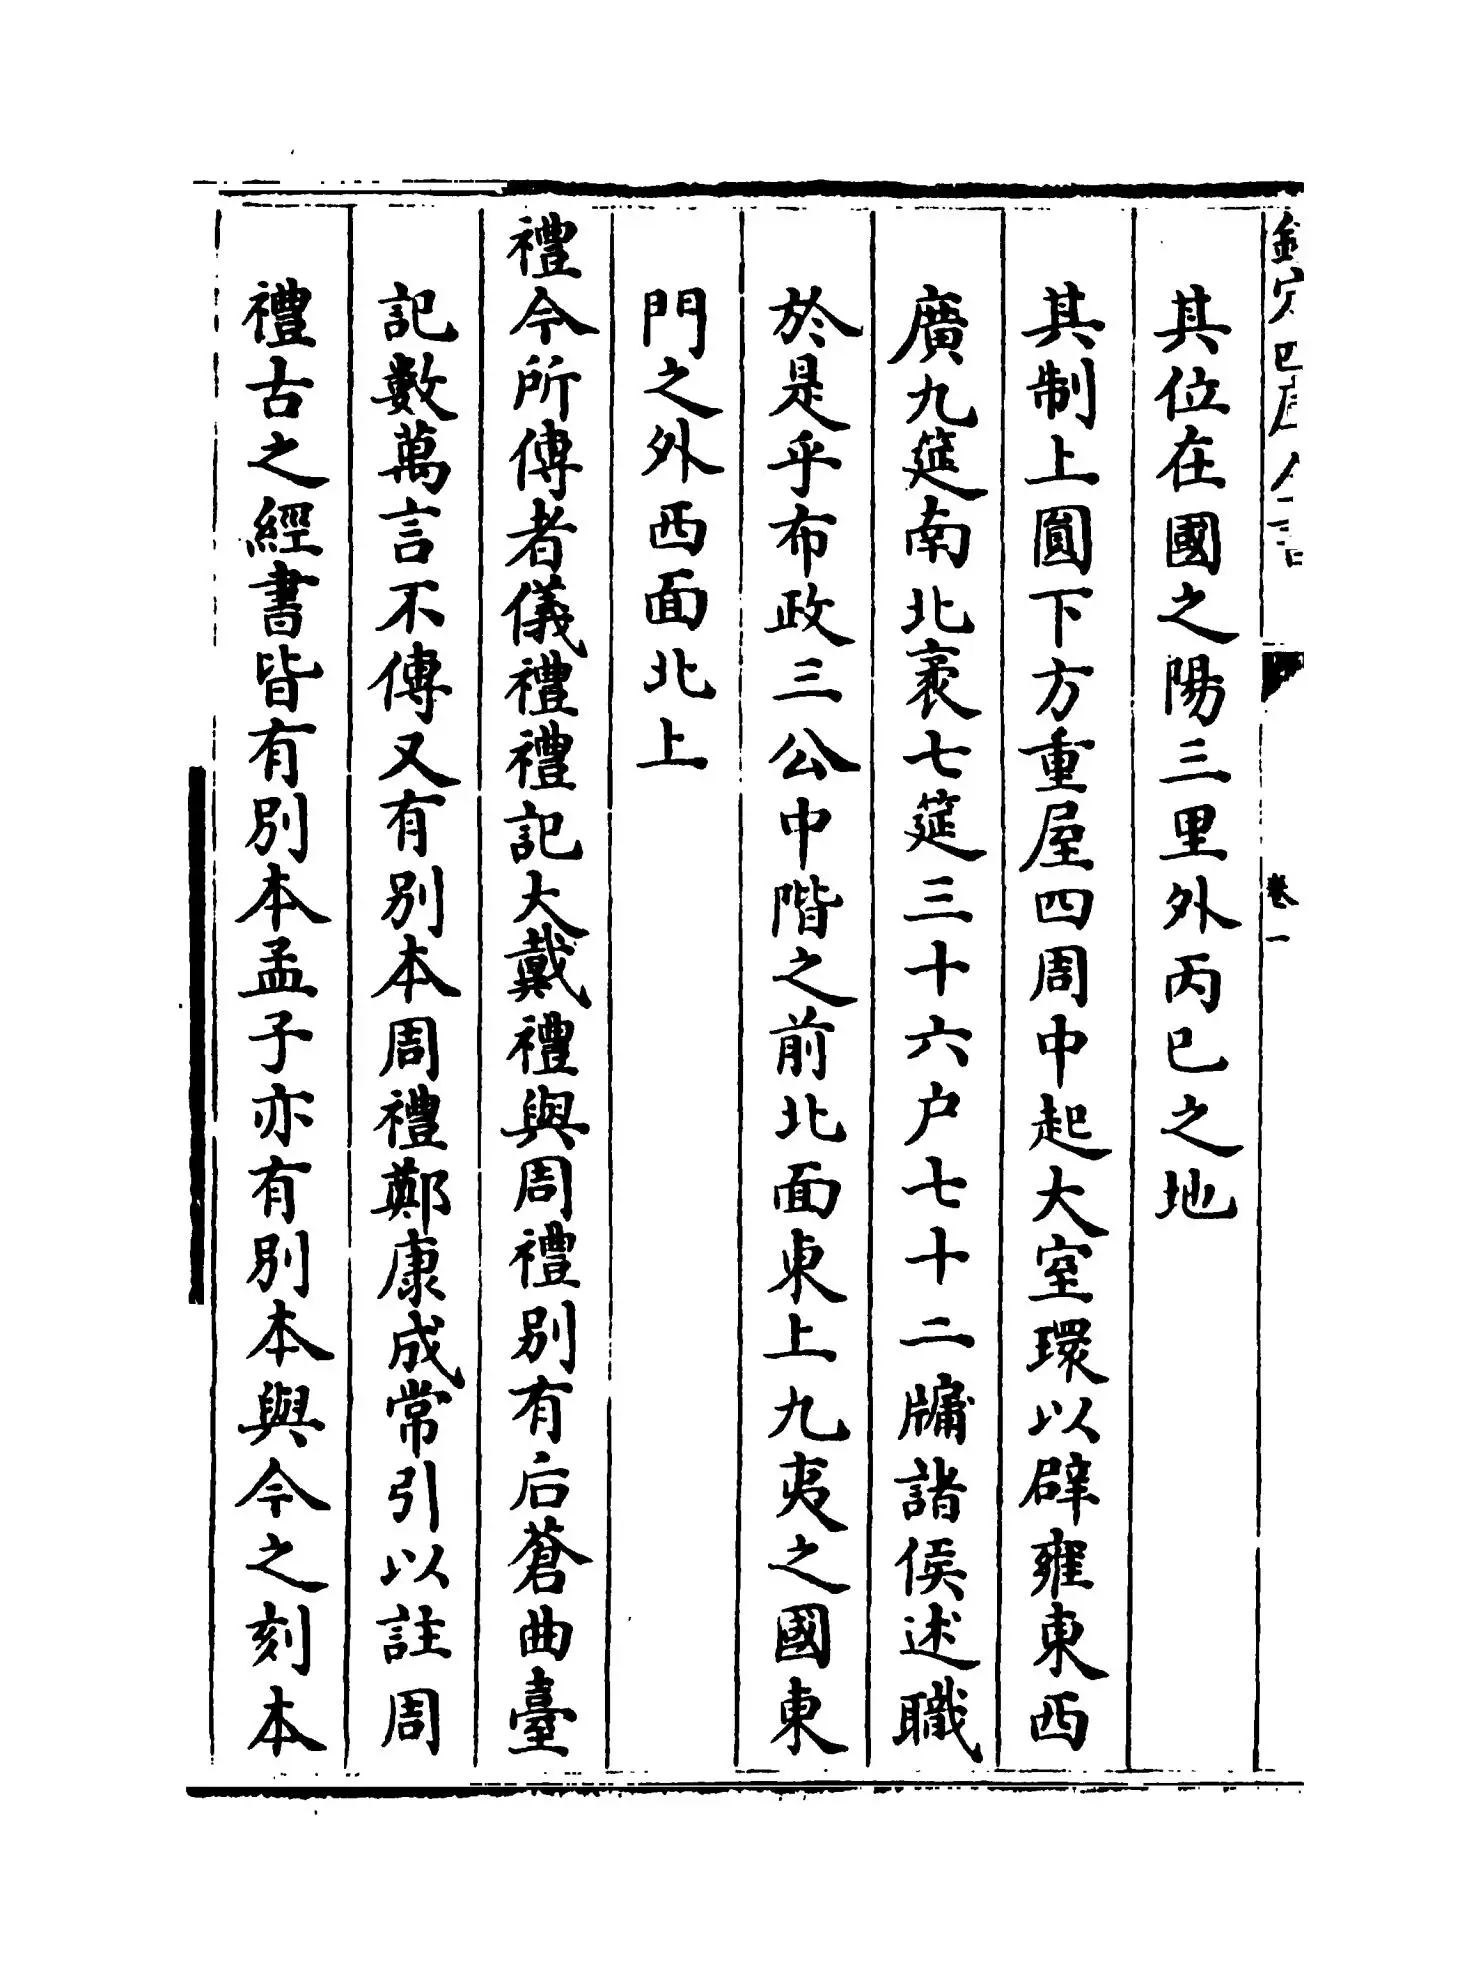 欽定四庫全書
卷一
其位在國之陽三里外丙巳之地
其制上圓下方重屋四周中起大室環以辟雍東西
廣九筵南北袤七筵三十六户七十二牖諸侯述職
於是乎布政三公中階之前北面東上九夷之國東
門之外西面北上
禮今所傳者儀禮禮記大戴禮與周禮别有后蒼曲臺
記數萬言不傳又有别本周禮鄭康成常引以註周
禮古之經書皆有别本孟子亦有别本與今之刻本